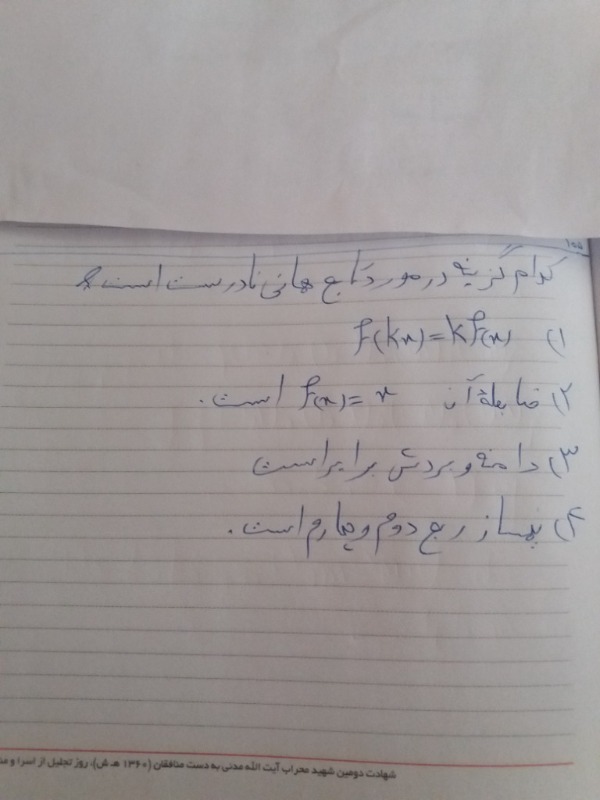 ۱۵۵
کدام گزینه در مورد تابع همانی نادرست است؟
۱) f(kx)=kf(x)
۲) ضابطهٔ آن f(x)=x است.
۳) دامنه و بردش برابر است
۴) نیمساز ربع دوم و چهارم است.
شهادت دومین شهید محراب آیت الله مدنی به دست منافقان (۱۳۶۰ هـ ش)، روز تجلیل از اسرا و